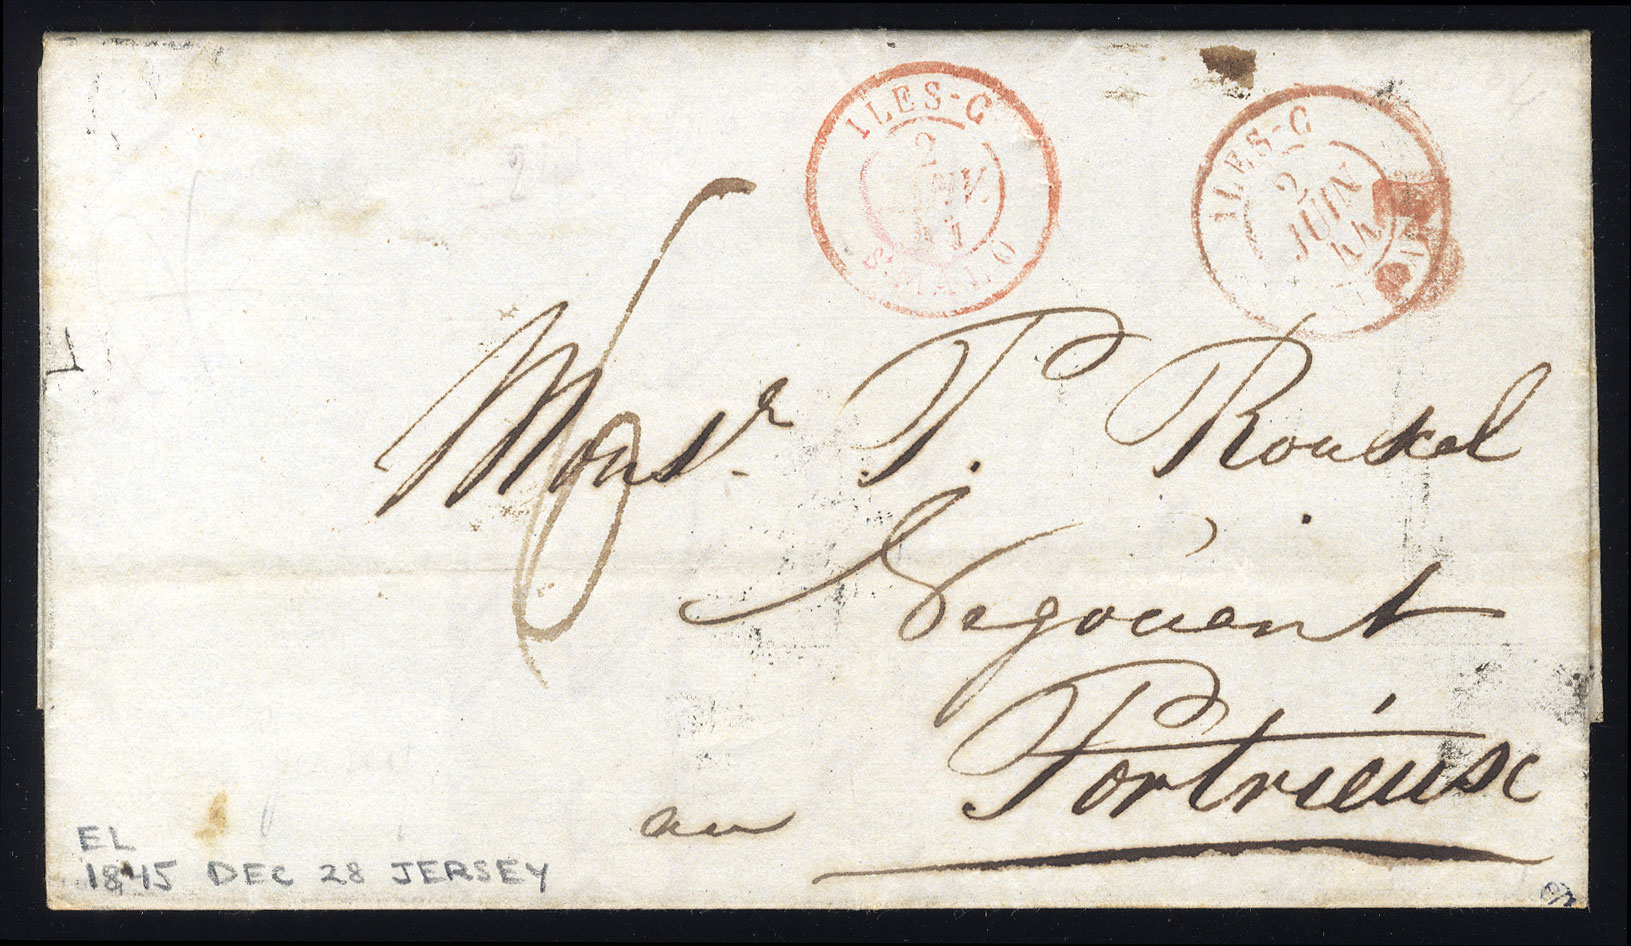 ILES-C
2
S. MALO
ILES-C
2
JUIN
44
6
Monsr. P. Rouxel
Négociant
au Portrieux
EL
1845 DEC 28 JERSEY